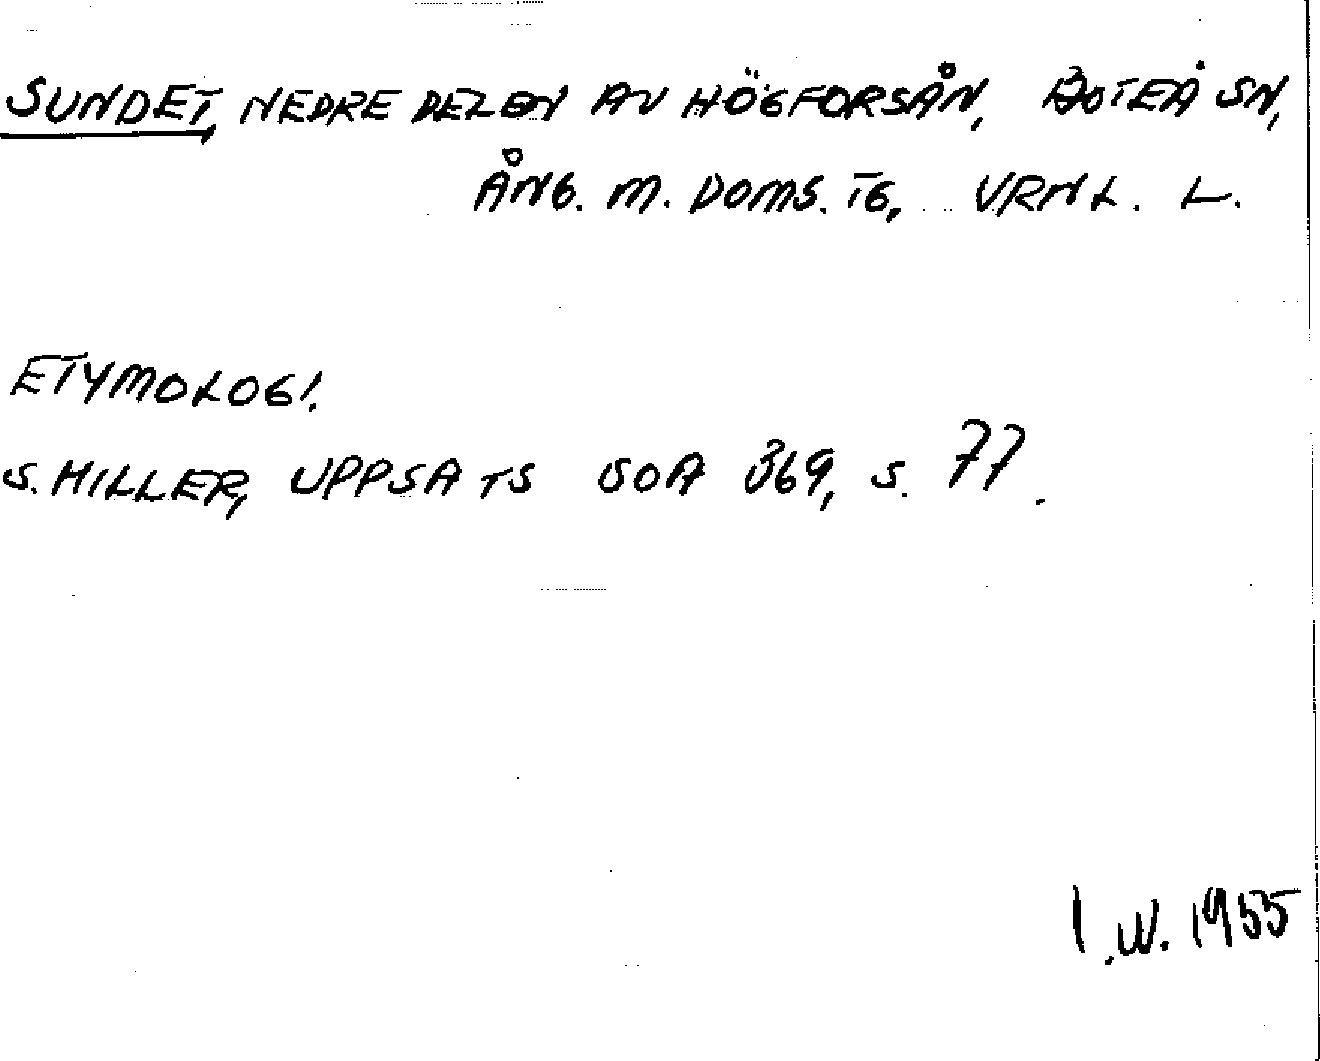 SUNDET, NEDRE DELEN AV HÖGFORSÅN, BOTEÅ SN,
ÅNG. M. DOMS. TG, VRNL. L.
ETYMOLOGI.
S. HILLER, UPPSATS SOA 369, S. 77.
I.W. 1955